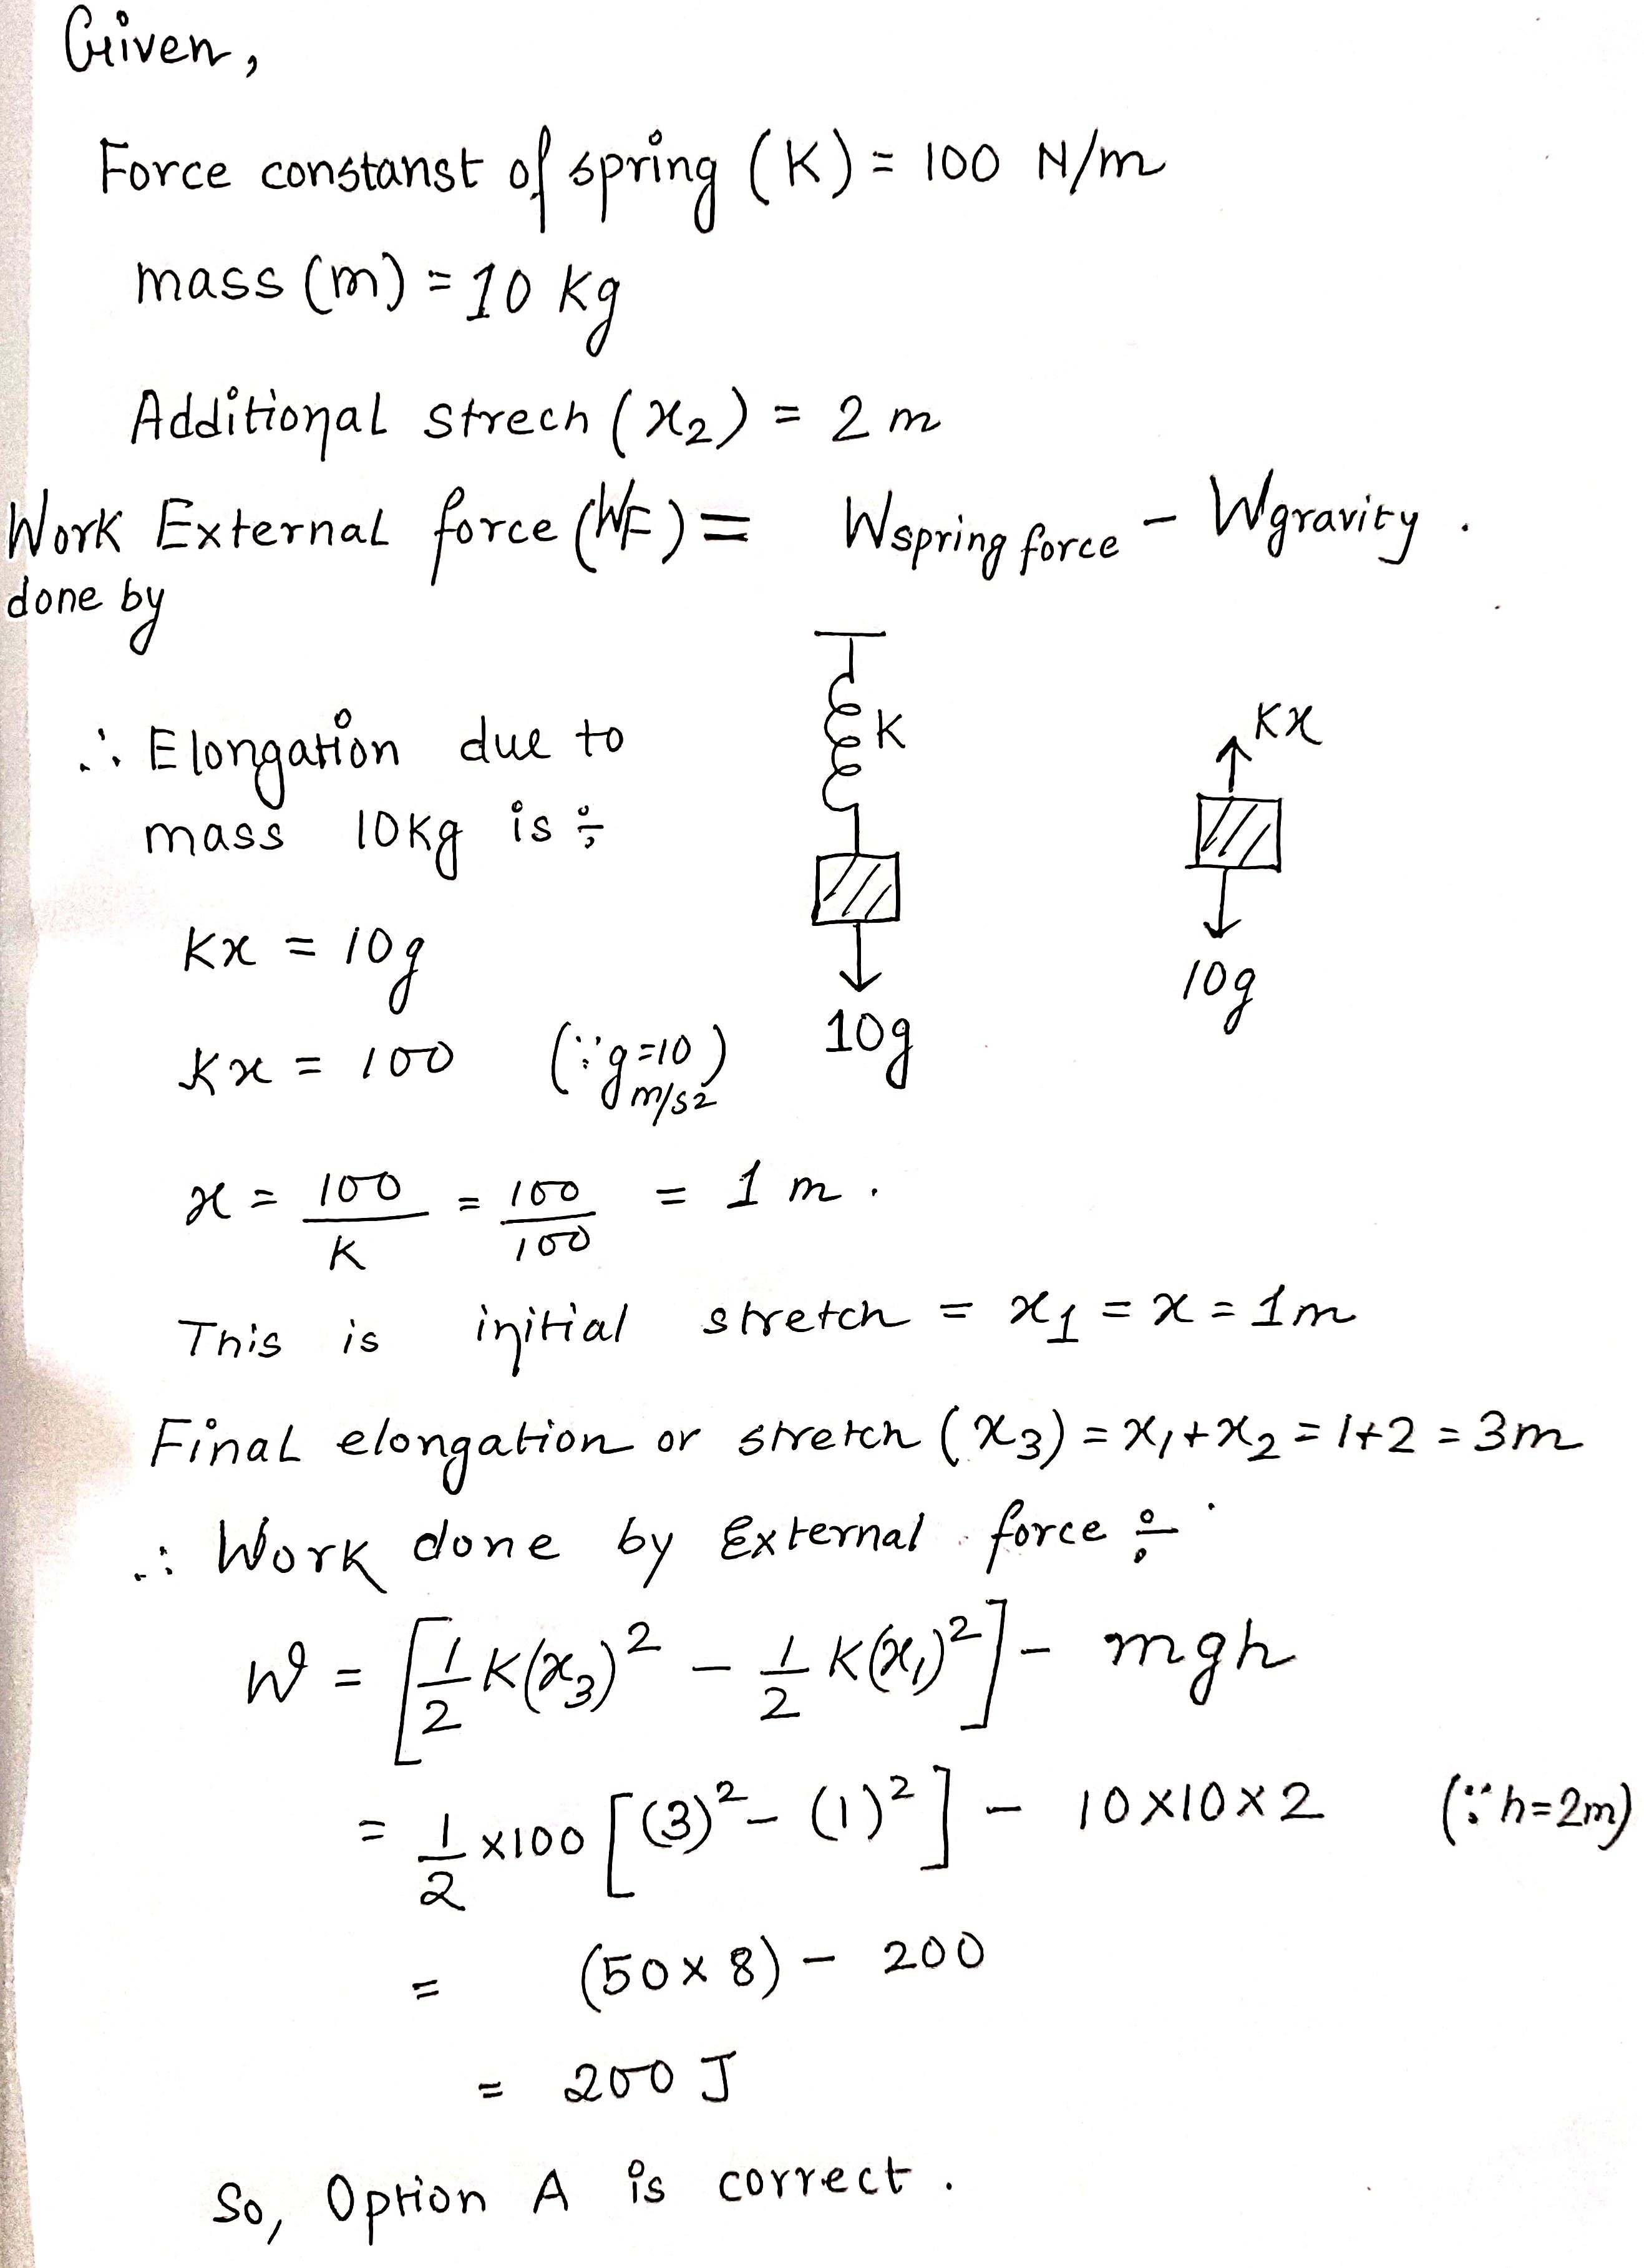 Given,
Force constanst of spring (K) = 100 N/m
mass (m) = 10 kg
Additional strech (x₂) = 2 m
Work External force (WF) = Wspring force - Wgravity .
done by
∴ Elongation due to
mass 10kg is ÷
K
Kx
Kx = 10g
10g
Kx = 100 (∵ g=10 m/s2)
10g
x = 100/K = 100/100 = 1 m .
This is initial stretch = x₁ = x = 1m
Final elongation or stretch (x₃) = x₁+x₂ = 1+2 = 3m
∴ Work done by External force ÷
W = [1/2 K(x₃)² - 1/2 K(x₁)²] - mgh
= 1/2 ×100 [(3)² - (1)²] - 10×10×2 (∵ h=2m)
= (50×8) - 200
= 200 J
So, Option A is correct .